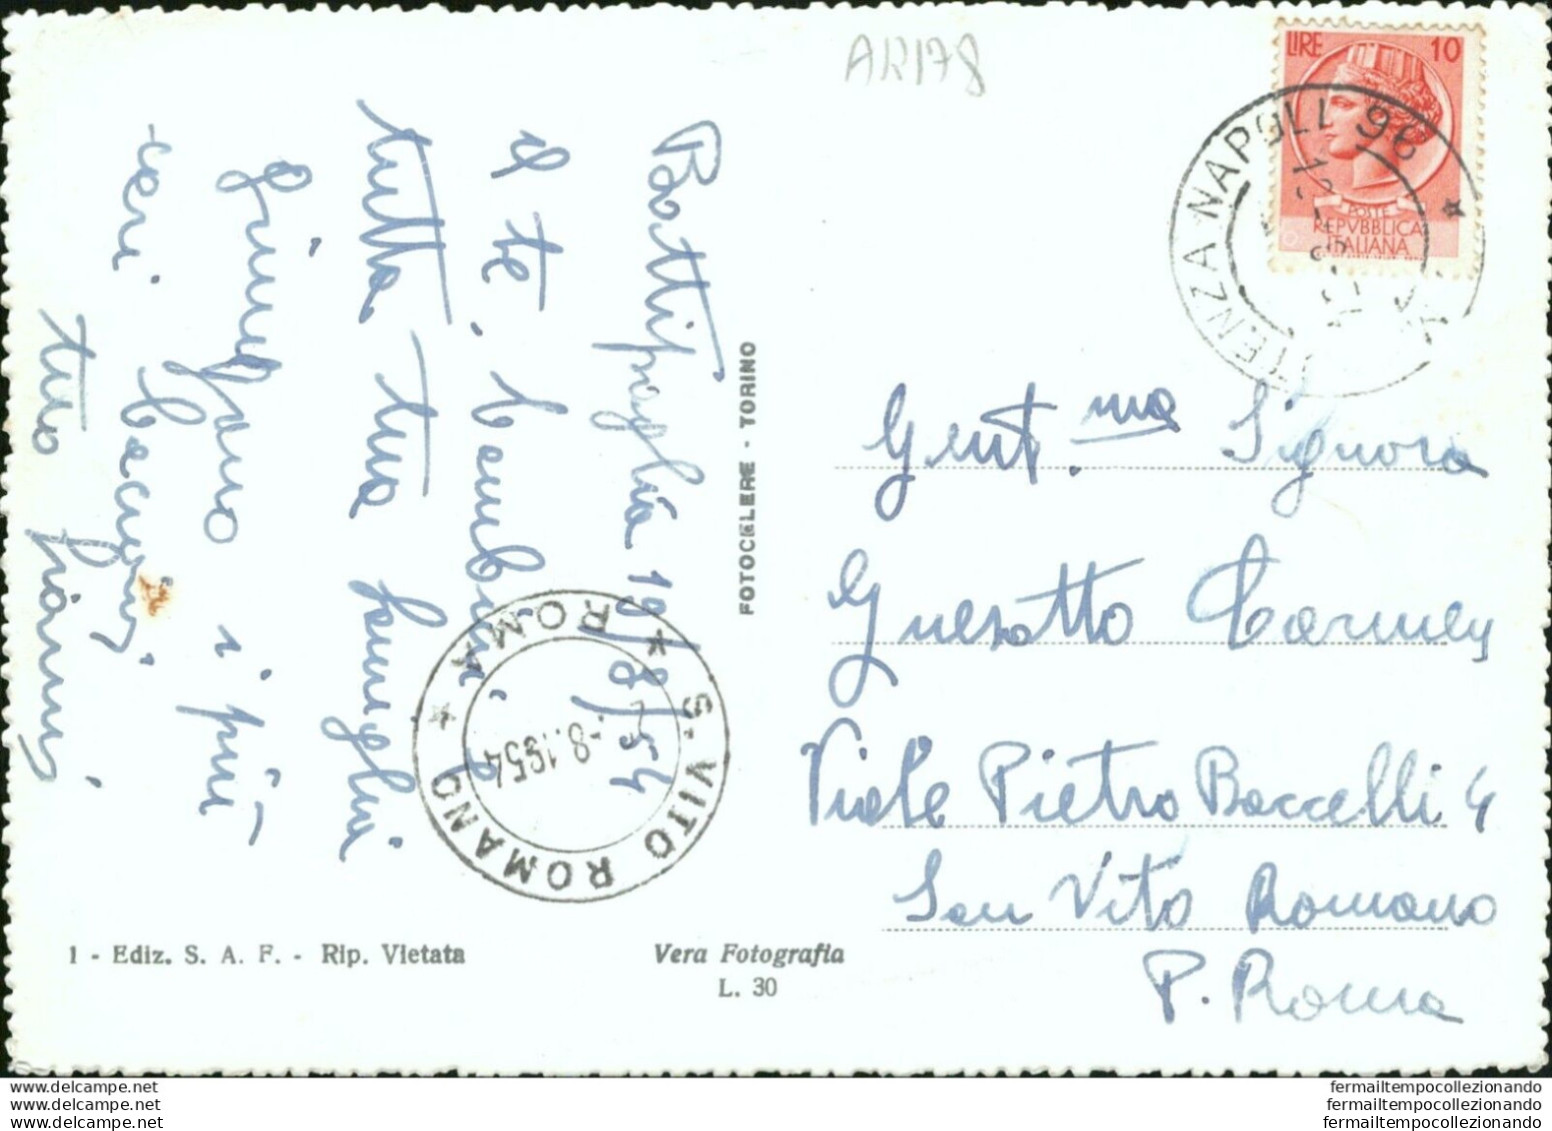 AR178
LIRE 10
POSTE
REPVBBLICA
ITALIANA
NAPOLI 96
Battipaglia 19/8/54
A te, bambini, e
tutta tua famiglia
Giungano i più
cari bacioni,
tuo Gianni
FOTOCELERE - TORINO
S. VITO ROMANO
* ROMA *
-8.1954
Gent.ma Signora
Guesotto Carmen
Viale Pietro Baccelli 4
San Vito Romano
P. Roma
1 - Ediz. S. A. F. - Rip. Vietata
Vera Fotografia
L. 30
www.delcampe.net
www.delcampe.net
www.delcampe.net
fermailtempocollezionando
fermailtempocollezionando
fermailtempocollezionando